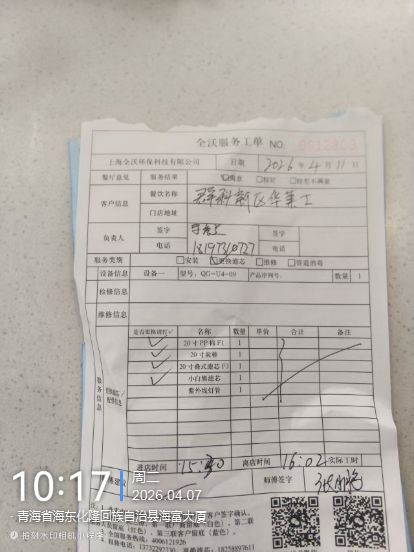 全沃服务工单 NO: 0012803
上海全沃环保科技有限公司 日期 2026年4月11日
餐厅意见 服务结果 ☑满意 ☐较好 ☐好至不满意
客户信息 餐饮名称 群科新区华莱士
门店地址
负责人 签字 签字
电话 18197310727 电话
服务类别 ☐安装 ☑更换滤芯 ☐维修 ☐管道消毒
设备信息 设备一 型号: QG-U4-09 产品序列号: 数量 1
检修信息
维修信息
服务信息
是否更换请打✓ 名称 数量 单价 合计 备注
✓ 20寸PP棉F1 1
✓ 20寸炭棒 1
✓ 20寸曲式滤芯F3 1
✓ 小白鲸滤芯 1
紫外线灯管 1
进店时间 15:30 离店时间 16:02 实际工时
师傅签字
10:17 周二
2026.04.07
青海省海东化隆回族自治县海富大厦
抢刻水印相机小程序